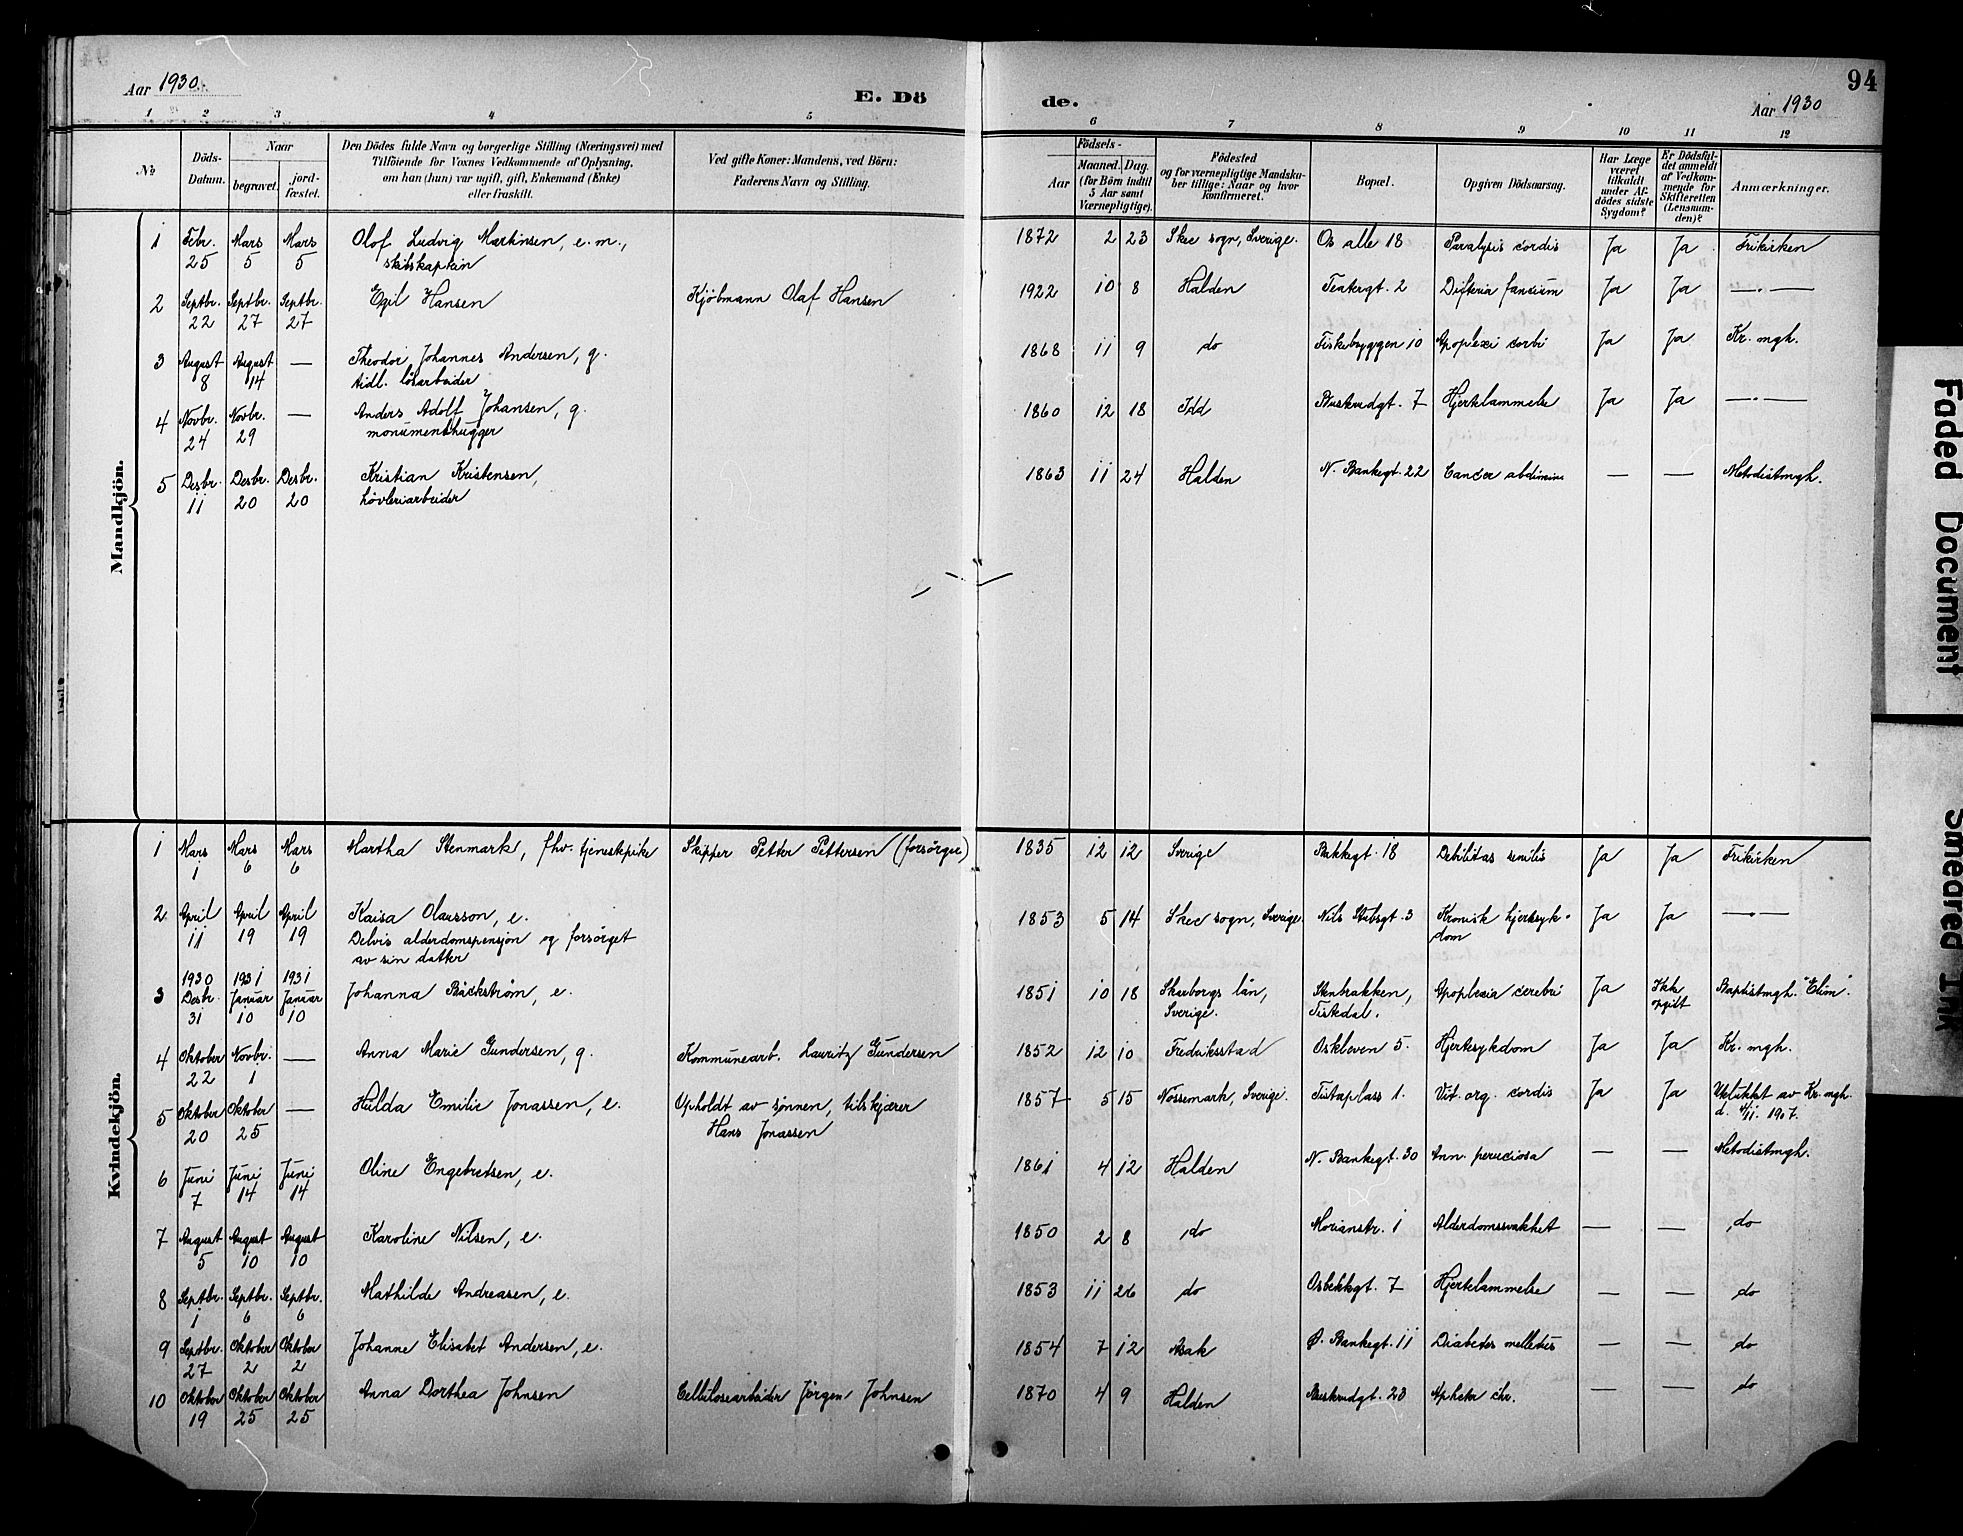 94
Aar 1930.
E. Dö de.
Aar 1930
1 2 3 4 5 6 7 8 9 10 11 12
No
Döds-Datum.
Naar
begravet.
jord-fæstet.
Den Dödes fulde Navn og borgerlige Stilling (Næringsvei) med
Tilföiende for Voxnes Vedkommende af Oplysning,
om han (hun) var ugift, gift, Enkemand (Enke)
eller fraskilt.
Ved gifte Koner: Mandens, ved Börn:
Faderens Navn og Stilling.
Födsels-
Aar
Maaned. Dag.
(for Börn indtil
5 Aar samt
Værnepligtige).
Födested
og for værnepligtige Mandska-
ber tillige: Naar og hvor
konfirmeret.
Bopæl.
Opgiven Dödsaarsag.
Har Læge
været
tilkaldt
under Af-
dödes sidste
Sygdom?
Er Dödsfal-
det anmeldt
af Vedkom-
mende for
Skifteretten
(Lensman-
den)?
Anmærkninger.
Mandkjön.
1 Febr. 25 Mars 5 Mars 5 Olof Ludvig Martinsen, e.m., skibskaptein 1872 2 23 Skee sogn, Sverige. Os alle 18 Paralysis cordis Ja Ja Frikirken
2 Septbr. 22 Septbr. 27 Septbr. 27 Egil Hansen Kjøbmann Olaf Hansen 1922 10 8 Halden Teatergt. 2 Difteria faucium Ja Ja —·—
3 August 8 August 14 — Theodor Johannes Andersen, g. tidl. løsarbeider 1868 11 9 do Fiskebryggen 10 Apoplexi Ja Ja Kr. mgh.
4 Novbr. 24 Novbr. 29 — Anders Adolf Johansen, g. monumenthugger 1860 12 18 Idd Buskrudgt. 7 Hjertelammelse Ja Ja —·—
5 Desbr. 11 Desbr. 20 Desbr. 20 Kristian Kristensen, høvleriarbeider 1863 11 24 Halden N. Bankegt. 22 Cancer — — Metodistmgh.
Kvindekjön.
1 Mars 1 Mars 6 Mars 6 Martha Stenmark, fhv. tjenestepike Skipper Petter Pettersen (forsørger) 1835 12 12 Sverige Bakkegt. 18 Debilitas senilis Ja Ja Frikirken
2 April 11 April 19 April 19 Kaisa Olausson, e. Delvis alderdomspensjon og forsørget av sin datter 1853 5 14 Skee sogn, Sverige. Nils Stubsgt. 3 Kronisk hjertesyk- dom Ja Ja —·—
3 1930 Desbr. 31 1931 Januar 10 1931 Januar 10 Johanna Bäckstrøm, e. 1851 10 18 Skarborgs län, Sverige. Stenbrakken, Tistedal. Apoplexia cerebri Ja Ikke opgitt Baptistmgh. "Elim".
4 Oktober 22 Novbr. 1 — Anna Marie Gundersen, g. Kommunearb. Lauritz Gundersen 1852 12 10 Fredriksstad Oskleven 5. Hjertesykdom Ja Ja Kr. mgh.
5 Oktober 20 Oktober 25 — Hulda Emilie Jonassen, e. Opholdt av sønnen, tilskjærer Hans Jonassen 1857 5 15 Nössemark, Sverige. Tistaplass 1. Vit. org. cordis Ja Ja Utslikket av Kr. mgh. d. 4/11. 1907.
6 Juni 7 Juni 14 Juni 14 Oline Engebretsen, e. 1861 4 12 Halden N. Bankegt. 30 Ann. perniciosa — — Metodistmgh.
7 August 5 August 10 August 10 Karoline Nilsen, e. 1850 2 8 do Morianstr. 1 Alderdomssvakhet — — do
8 Septbr. 1 Septbr. 6 Septbr. 6 Mathilde Andreasen, e. 1853 11 26 do Osbekkgt. 7 Hjertelammelse — — do
9 Septbr. 27 Oktober 2 Oktober 2 Johanne Elisabet Andersen, e. 1854 7 12 Asak Ø. Bankegt. 11 Diabetes melletus — — do
10 Oktober 19 Oktober 25 Oktober 25 Anna Dorthea Johnsen Cellulosearbeider Jörgen Johnsen 1870 4 9 Halden Buskrudgt. 23 chr. — — do
Faded Document
Smeared Ink